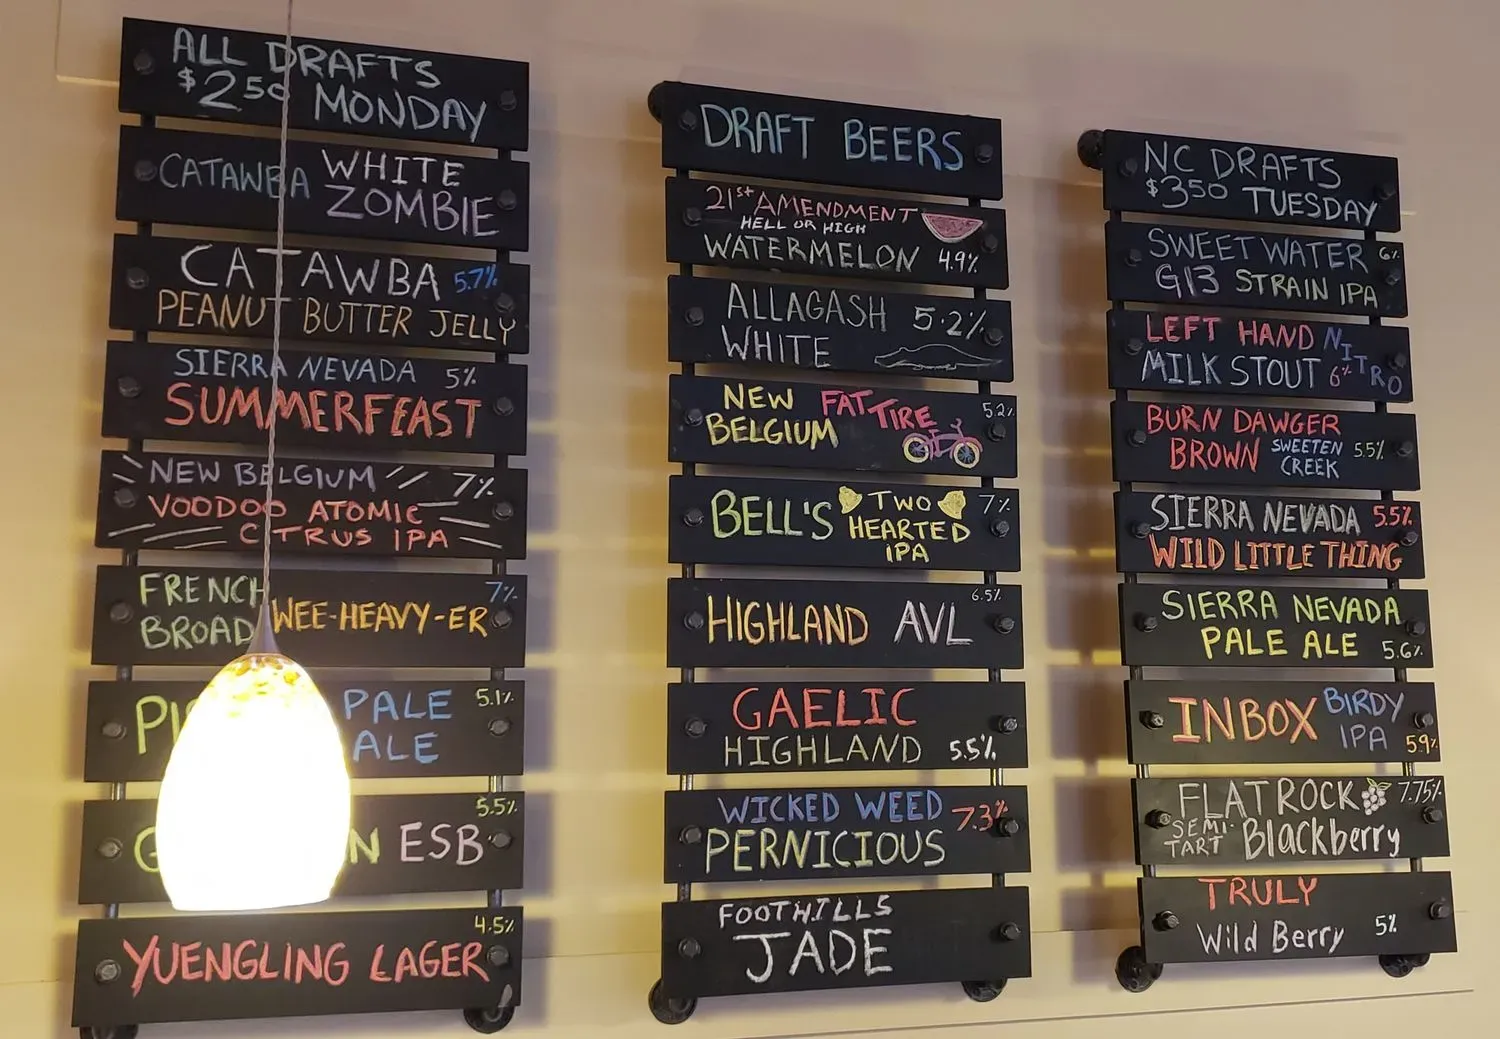 ALL DRAFTS
$2.50 MONDAY
CATAWBA WHITE
ZOMBIE
CATAWBA 5.7%
PEANUT BUTTER JELLY
SIERRA NEVADA 5%
SUMMERFEAST
NEW BELGIUM 7%
VOODOO ATOMIC
CITRUS IPA
FRENCH 7%
BROAD WEE-HEAVY-ER
PALE 5.1%
ALE
5.5%
ESB
4.5%
YUENGLING LAGER
DRAFT BEERS
21st AMENDMENT
HELL OR HIGH
WATERMELON 4.9%
ALLAGASH 5.2%
WHITE
NEW FAT TIRE 5.2%
BELGIUM
BELL'S TWO 7%
HEARTED
IPA
6.5%
HIGHLAND AVL
GAELIC
HIGHLAND 5.5%
WICKED WEED 7.3%
PERNICIOUS
FOOTHILLS
JADE
NC DRAFTS
$3.50 TUESDAY
SWEET WATER 6%
G13 STRAIN IPA
LEFT HAND NITRO
MILK STOUT 6%
BURN DAWGER
BROWN SWEETEN CREEK 5.5%
SIERRA NEVADA 5.5%
WILD LITTLE THING
SIERRA NEVADA
PALE ALE 5.6%
INBOX BIRDY
IPA 5.9%
FLAT ROCK 7.75%
SEMI-TART Blackberry
TRULY
Wild Berry 5%